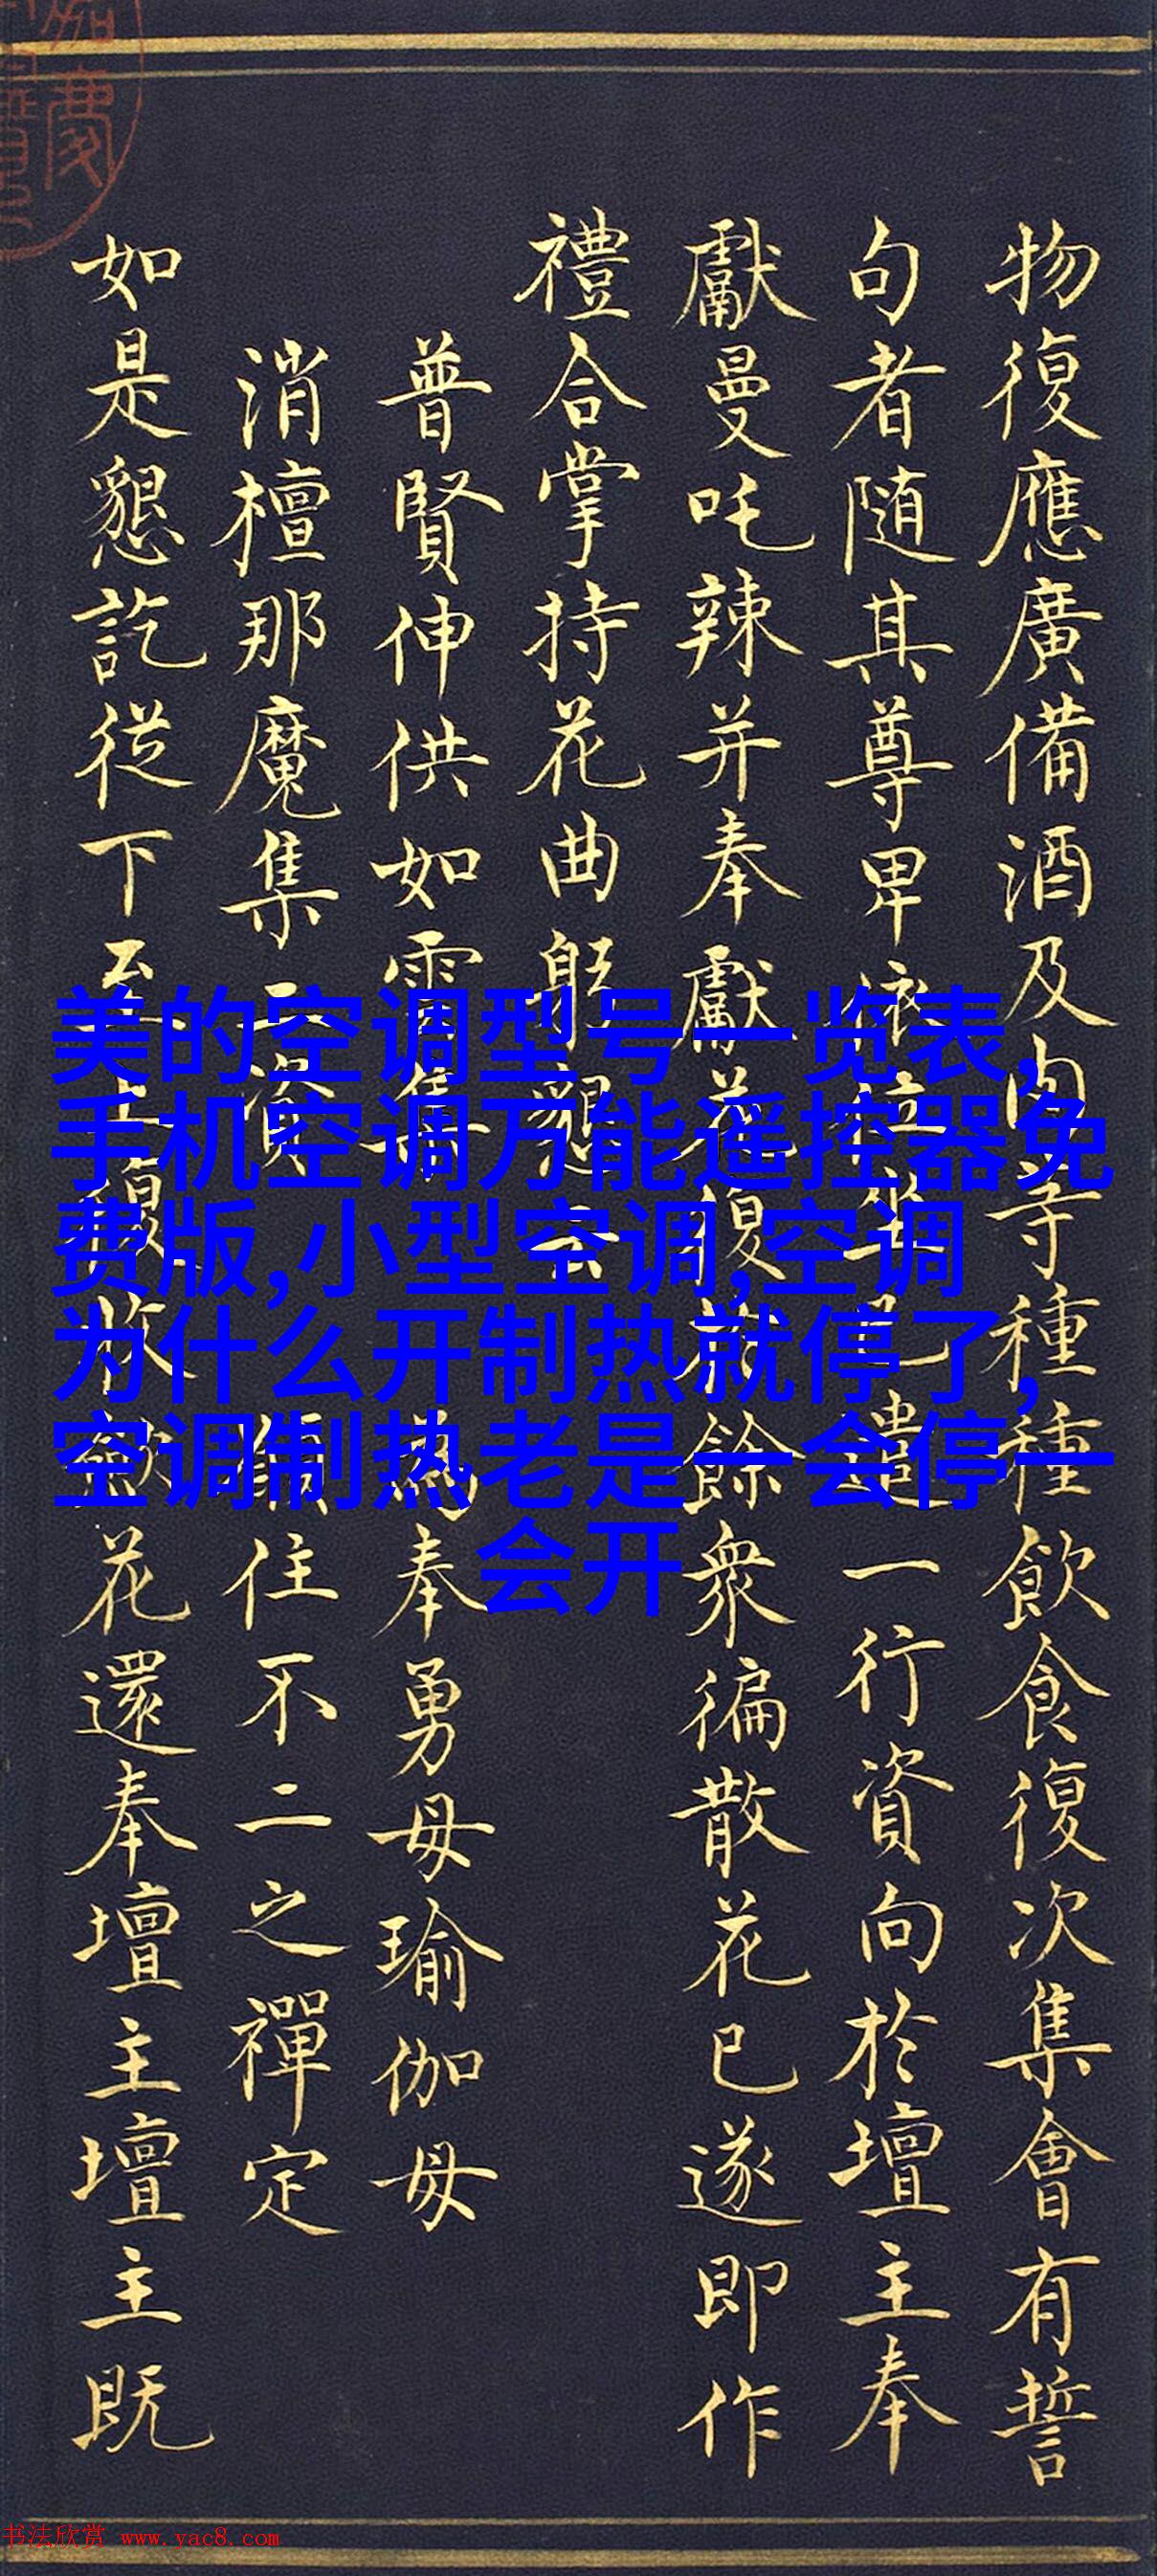 物復應廣備酒及肉等種種飲食復次集會有誓
句者随其尊卑依位坐已遣一行資向於壇主奉
獻曼吒辣并奉獻花復於餘衆徧散花已遂即作
禮合掌持花曲躬懇云
普賢伸供如雲集 為奉勇母瑜伽母
消檀那魔集二資 願住不二之禪定
如是懇訖從下至上復收斂花還奉壇主壇主既
美的空调型号一览表,
手机空调万能遥控器免
费版,小型空调,空调
为什么开制热就停了,
空调制热老是一会停一
会开
书法欣赏 www.yac8.com